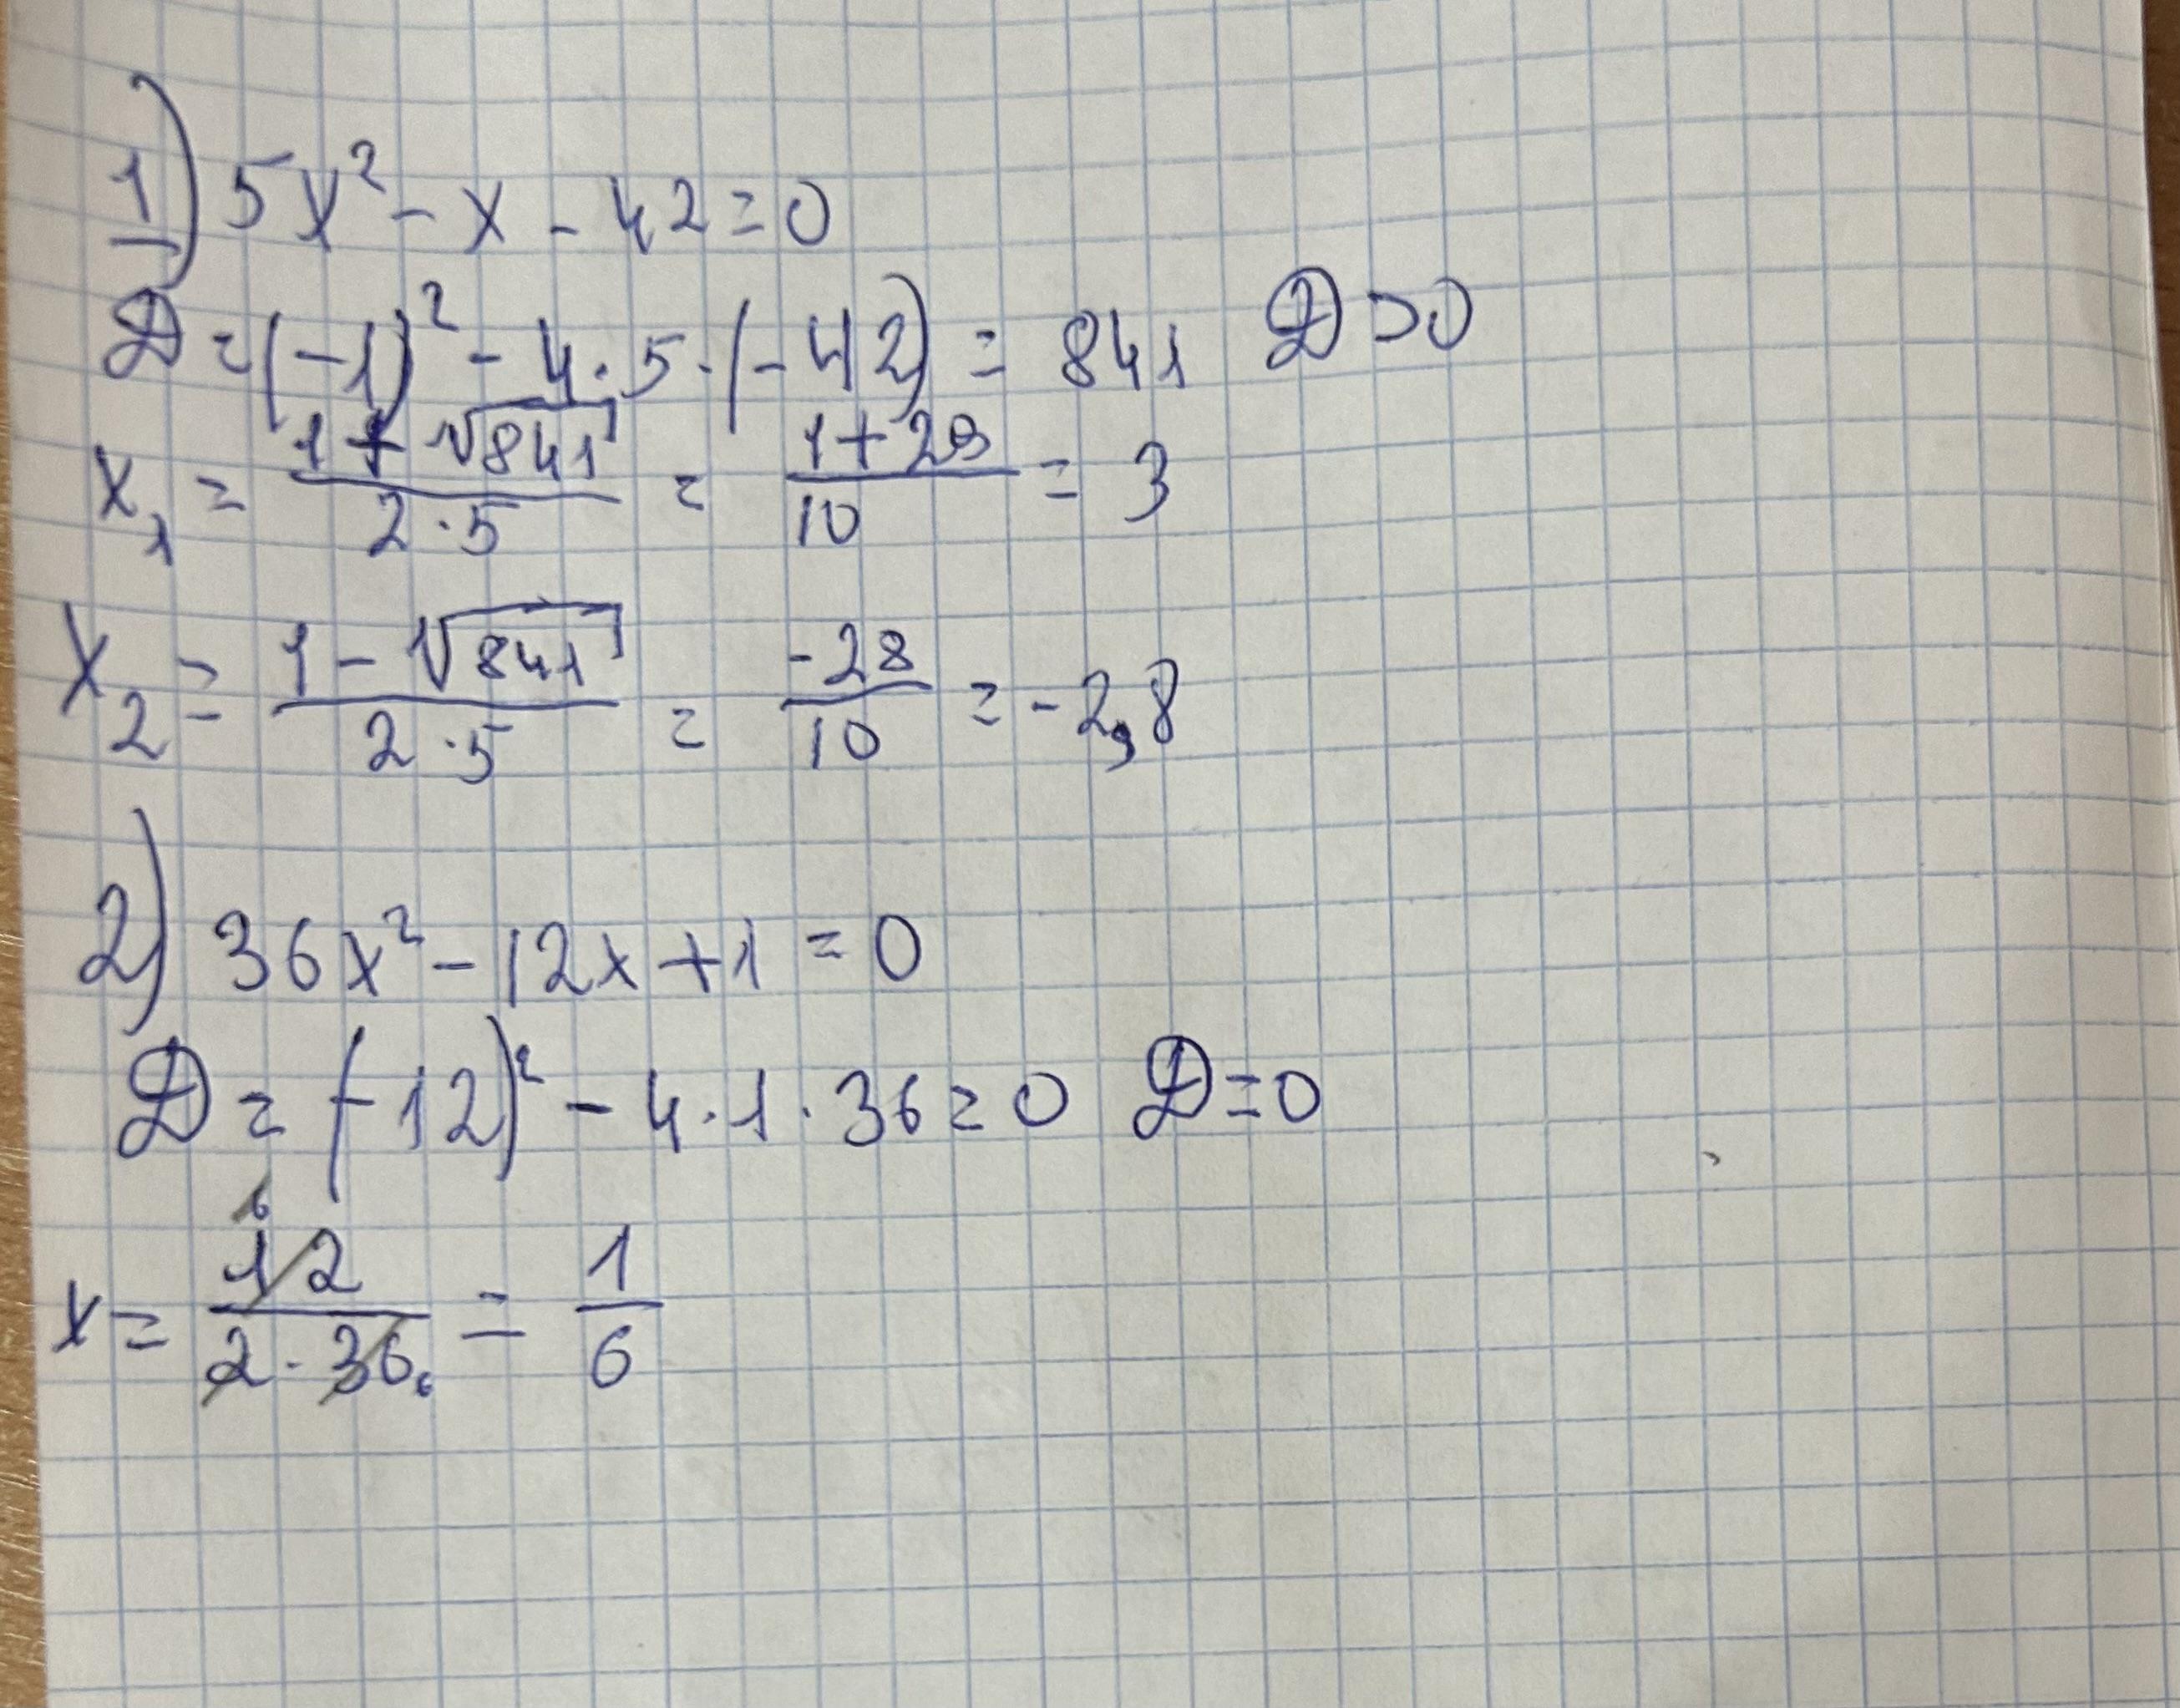 1) 5x² - x - 42 = 0
D = (-1)² - 4 · 5 · (-42) = 841 D > 0
x₁ = (1 + √841)/(2 · 5) = (1 + 29)/10 = 3
x₂ = (1 - √841)/(2 · 5) = -28/10 = -2,8
2) 36x² - 12x + 1 = 0
D = (-12)² - 4 · 1 · 36 = 0 D = 0
x = 12/(2 · 36) = 1/6